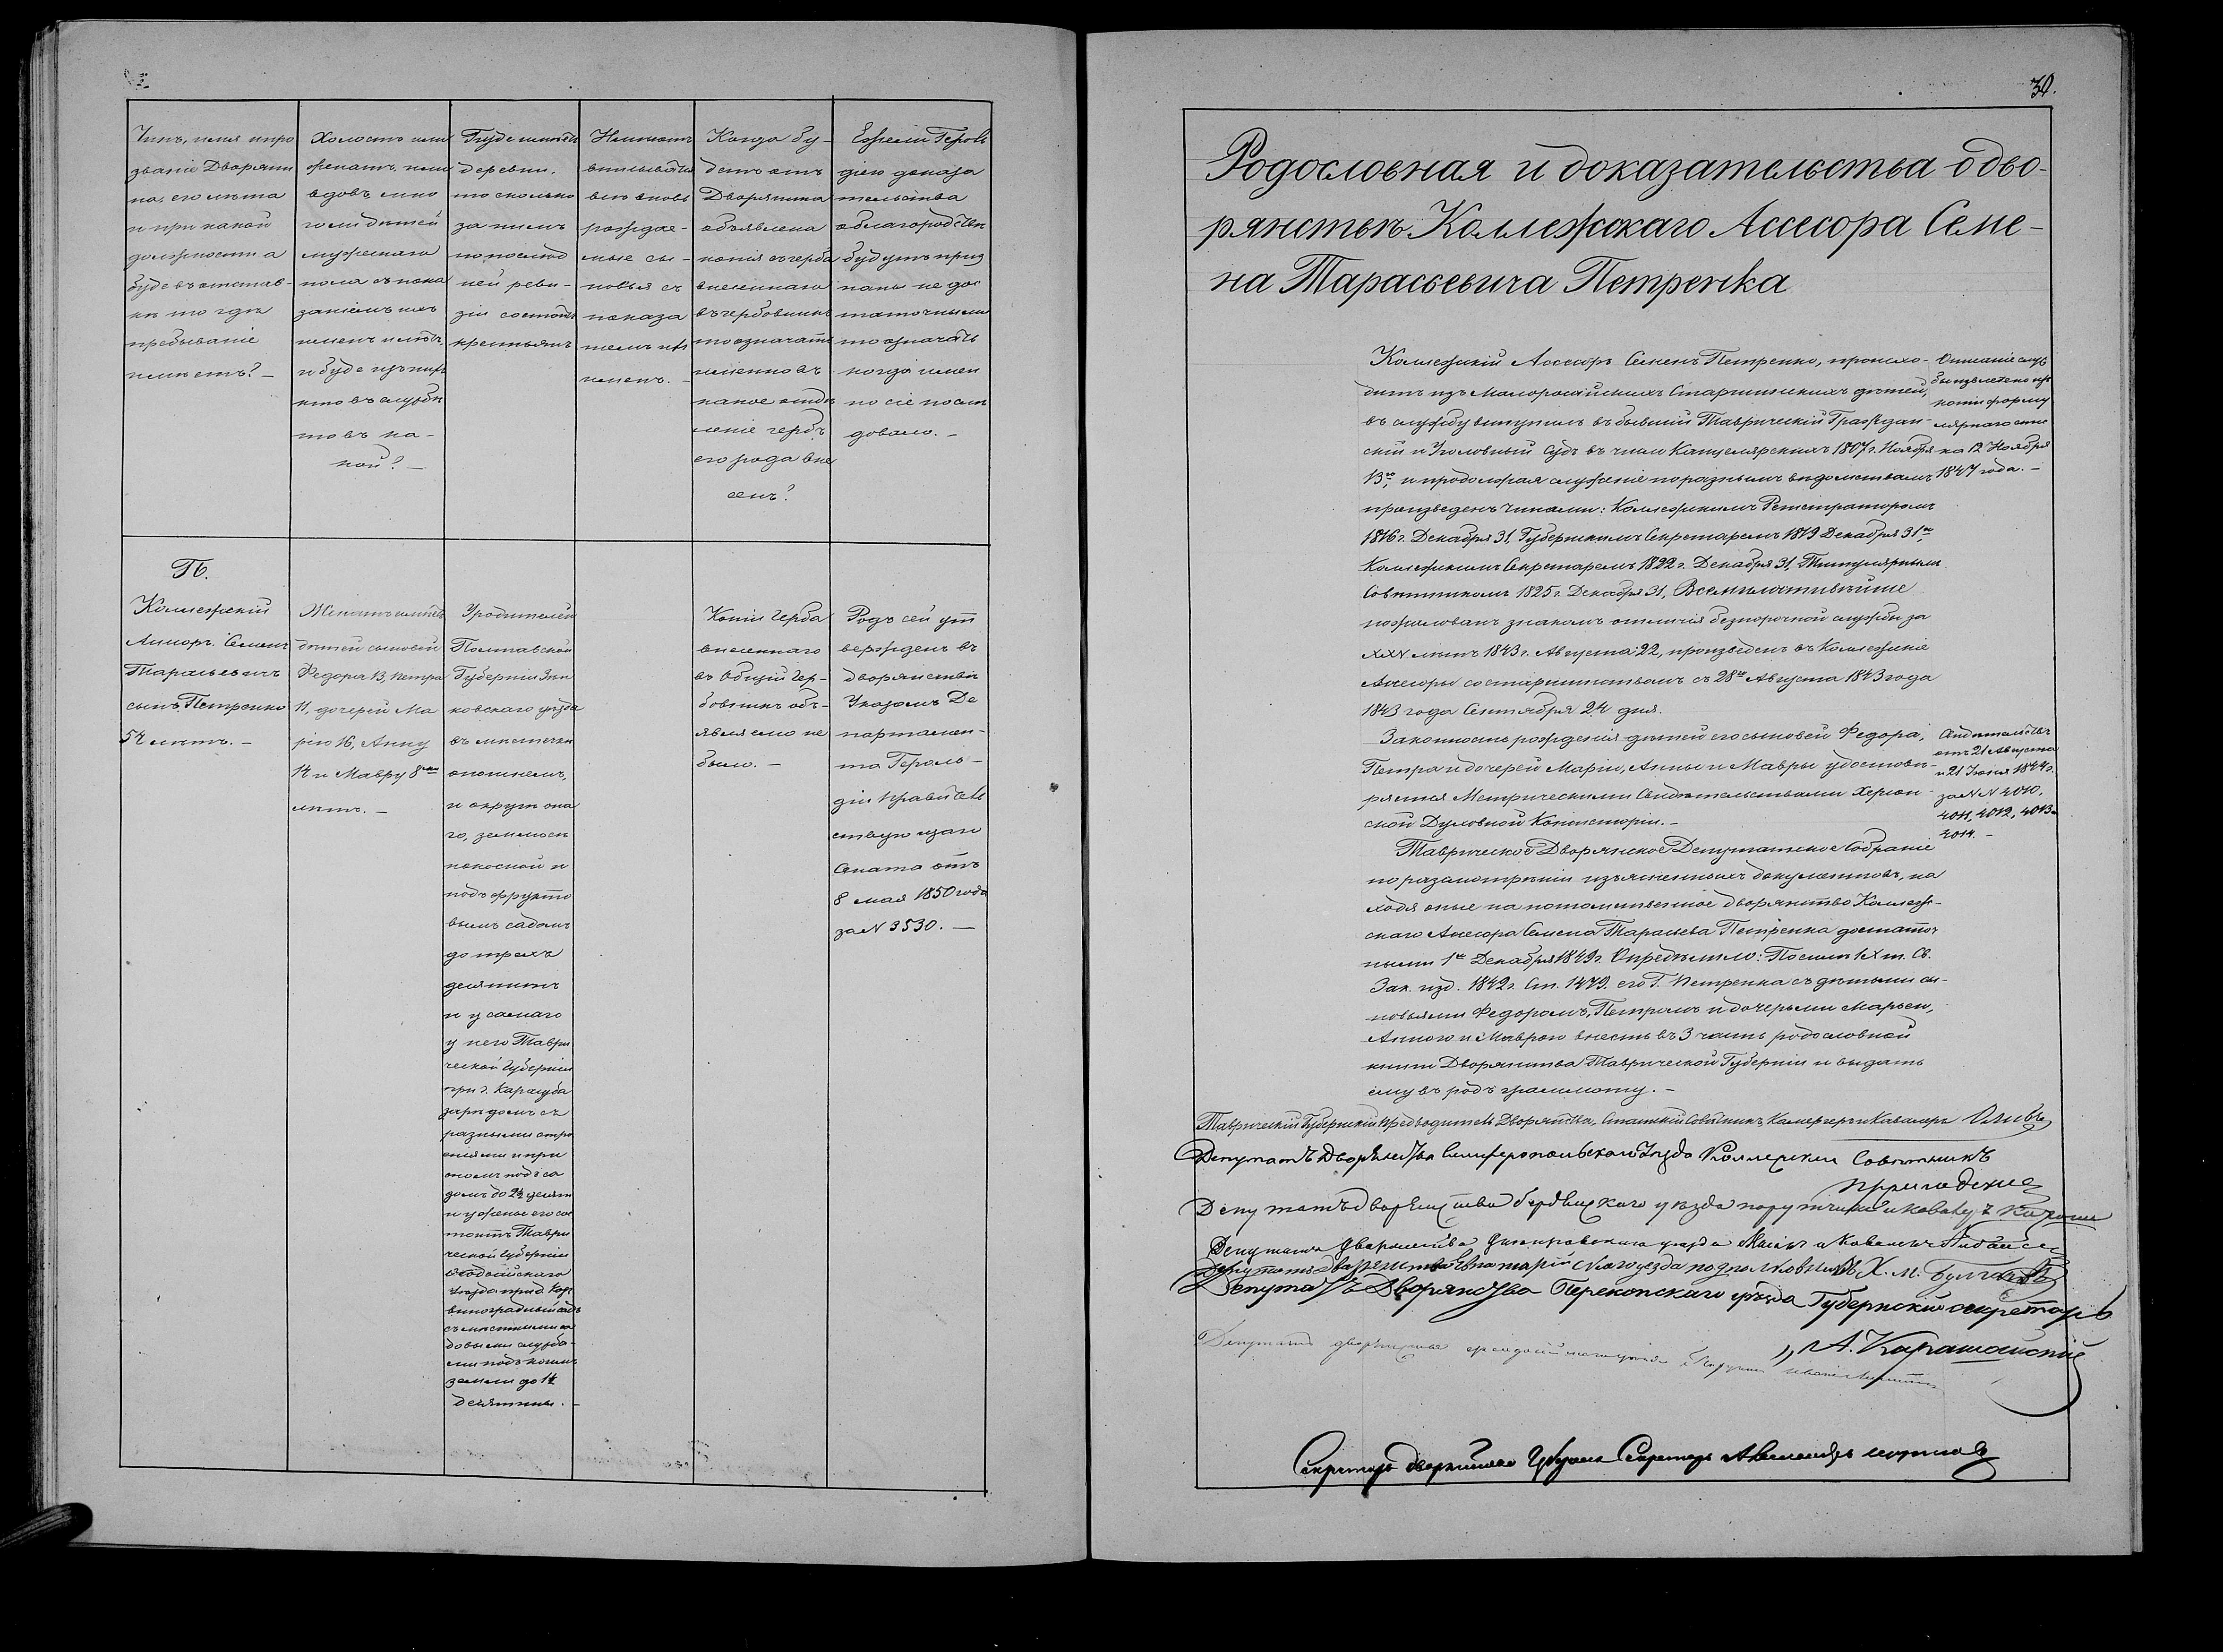 Чинъ, имя и про
званіе Дворяни
на, его лѣта
и при какой
должности а
буде въ отстав-
кѣ то гдѣ
пребываніе
имѣетъ? —
Холостъ или
женатъ, или
вдовъ, мно
го ли дѣтей
мужескаго
пола съ пока
заніемъ ихъ
именъ и лѣтъ
и буде изъ нихъ
кто въ службѣ
то въ ка-
кой? —
Буде имѣетъ
деревни,
то сколько
за нимъ
по послѣд
ней реви-
зіи состоитъ
крестьянъ
вписывать
вновь
рождае-
мые сы-
новья съ
показа
ніемъ ихъ
именъ. —
Когда бу-
детъ отъ
Дворянина
объявлена
копія съ герба
внесеннаго
въ гербовникъ
то означать
именно въ
какое отдѣ
леніе гербъ
его рода вне
сенъ?
Ежели Героль
діею доказа
тельства
о благородствѣ
будутъ приз
наны не дос
таточными
то означать
когда имен
но сіе послѣ
довало. —
П.
Коллежскій
Ассесоръ Семенъ
Тарасьевичъ
сынъ Петренко
54 лѣтъ. —
Женатъ имѣетъ
дѣтей сыновей
Федора 13, Петра
11, дочерей Ма
рію 16, Анну
14 и Мавру 8ми
лѣтъ. —
У родителей
Полтавской
Губерніи Зѣн
ковскаго уѣзда
въ мѣстечкѣ
и округѣ она
го, земли сѣ
нокосной и
подъ фрукто
вымъ садомъ
до трехъ
десятинъ
и у самаго
у него Таври
ческой Губерніи
при г. Карасуба
зарѣ домъ съ
разными стро
еніями и при
ономъ подъ са
домъ до 2½ десят
и у жены его сос
тоитъ Таври
ческой Губерніи
Ѳеодосійскаго
Уѣзда при д.
виноградный садъ
подъ коимъ
земли до 1½
десятины. —
Копіи Герба
внесеннаго
въ Общій Гер-
бовникъ объ-
являемо не
было. —
Родъ сей ут
вержденъ въ
дворянствѣ
Указомъ Де
партамен-
та Героль-
діи Правитель
ствующаго
Сената отъ
8 мая 1850 года
за N 3530. —
30.
Родословная и доказательства о дво-
рянствѣ Коллежскаго Ассесора Семе-
на Тарасьевича Петренка
Коллежскій Ассесоръ Семенъ Петренко, происхо-
дитъ изъ Малоросійскихъ Старшинскихъ дѣтей,
въ службу вступилъ въ бывшій Таврическій Граждан-
скій и Уголовный Судъ въ число Канцелярскихъ 1807 г. Ноября
13го, и продолжая служеніе по разнымъ вѣдомствамъ
произведенъ чинами: Коллежскимъ Регистраторомъ
1816 г. Декабря 31, Губернскимъ Секретаремъ 1819 Декабря 31го,
Коллежскимъ Секретаремъ 1822 г. Декабря 31, Титулярнымъ
Совѣтникомъ 1825 г. Декабря 31, Всемилостивѣйше
пожалованъ знакомъ отличія безпорочной службы за
XXV лѣтъ 1843 г. Августа 22, произведенъ въ Коллежскіе
Ассесоры со старшинствомъ съ 28го Августа 1843 года
1843 года Сентября 24 дня.
Законность рожденія дѣтей его сыновей Федора,
Петра и дочерей Маріи, Анны и Мавры удостовѣ-
ряется Метрическими Свидѣтельствами Херсон-
ской Духовной Консисторіи. —
Таврическое Дворянское Депутатское Собраніе
по разсмотрѣніи изъясненныхъ документовъ, на
ходя оные на потомственное дворянство Коллеж-
скаго Ассесора Семена Тарасьева Петренка достаточ
ными 1го Декабря 1849 г. Опредѣлило: По силѣ IX т. Св.
Зак. изд. 1842 г. Ст. 1479. его Г. Петренка съ дѣтьми сы-
новьями Федоромъ, Петромъ и дочерьми Марьею,
Анною и Маврою внесть въ 3 часть родословной
книги Дворянства Таврической Губерніи и выдать
ему въ родъ грамоту. —
Описаніе служ
бы извлечено изъ
копіи форму
лярнаго спис
ка 12 Ноября
1847 года. —
Свидѣтельствъ
отъ 21 Августа
и 21 Іюня 1844 г.
за NN 4010,
4011, 4012, 4013 и
4014. —
Таврическій Губернскій Предводитель Дворянства, Статскій Совѣтникъ Камергеръ и Кавалеръ Оливъ
Депутатъ Дворянства Симферопольскаго Уѣзда Коллежскій Совѣтникъ
Депутатъ дворянства Бердянскаго уѣзда поручикъ и кавалеръ
Депутатъ Дворянства Днѣпровскаго уѣзда Маіоръ и Кавалеръ
Депутатъ дворянства Евпаторійскаго уезда подполковникъ Х. М. Булгаковъ
Депутатъ Дворянства Перекопскаго уѣзда Губернскій секретарь
А. Карашайскій
Депутатъ дворянства
Секретарь дворянства Губернск Секретарь Александръ